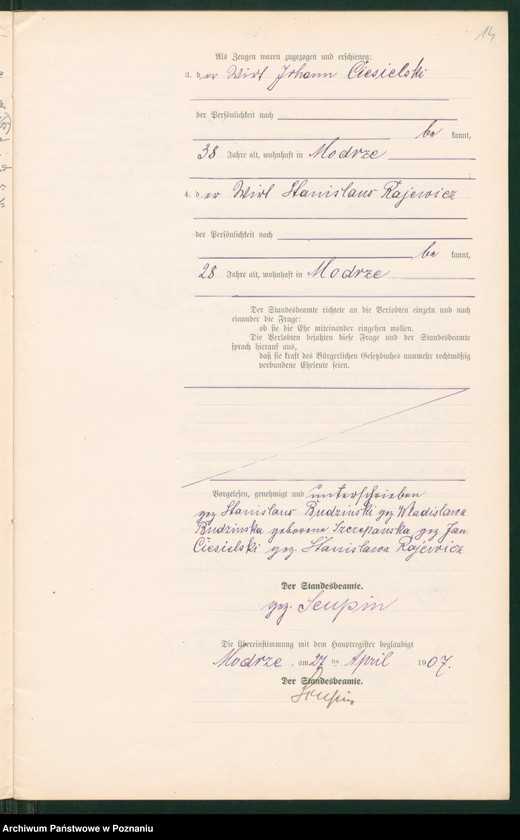 14
Als Zeugen waren zugezogen und erschienen:
3. der Wirt Johann Ciesielski
der Persönlichkeit nach
be kannt,
38 Jahre alt, wohnhaft in Modrze
4. der Wirt Stanislaus Rajewicz
der Persönlichkeit nach
be kannt,
28 Jahre alt, wohnhaft in Modrze
Der Standesbeamte richtete an die Verlobten einzeln und nach
einander die Frage:
ob sie die Ehe miteinander eingehen wollen.
Die Verlobten bejahten diese Frage und der Standesbeamte
sprach hierauf aus,
daß sie kraft des Bürgerlichen Gesetzbuches nunmehr rechtmäßig
verbundene Eheleute seien.
Vorgelesen, genehmigt und unterschrieben
gez Stanislaus Budzinski gez Wladislawa
Budzinska geborene Szczepanska gez Jan
Ciesielski gez. Stanislawa Rajewicz
Der Standesbeamte.
gez. Seupin
Die Übereinstimmung mit dem Hauptregister beglaubigt
Modrze, am 27 ten April 1907.
Der Standesbeamte.
Seupin
Archiwum Państwowe w Poznaniu